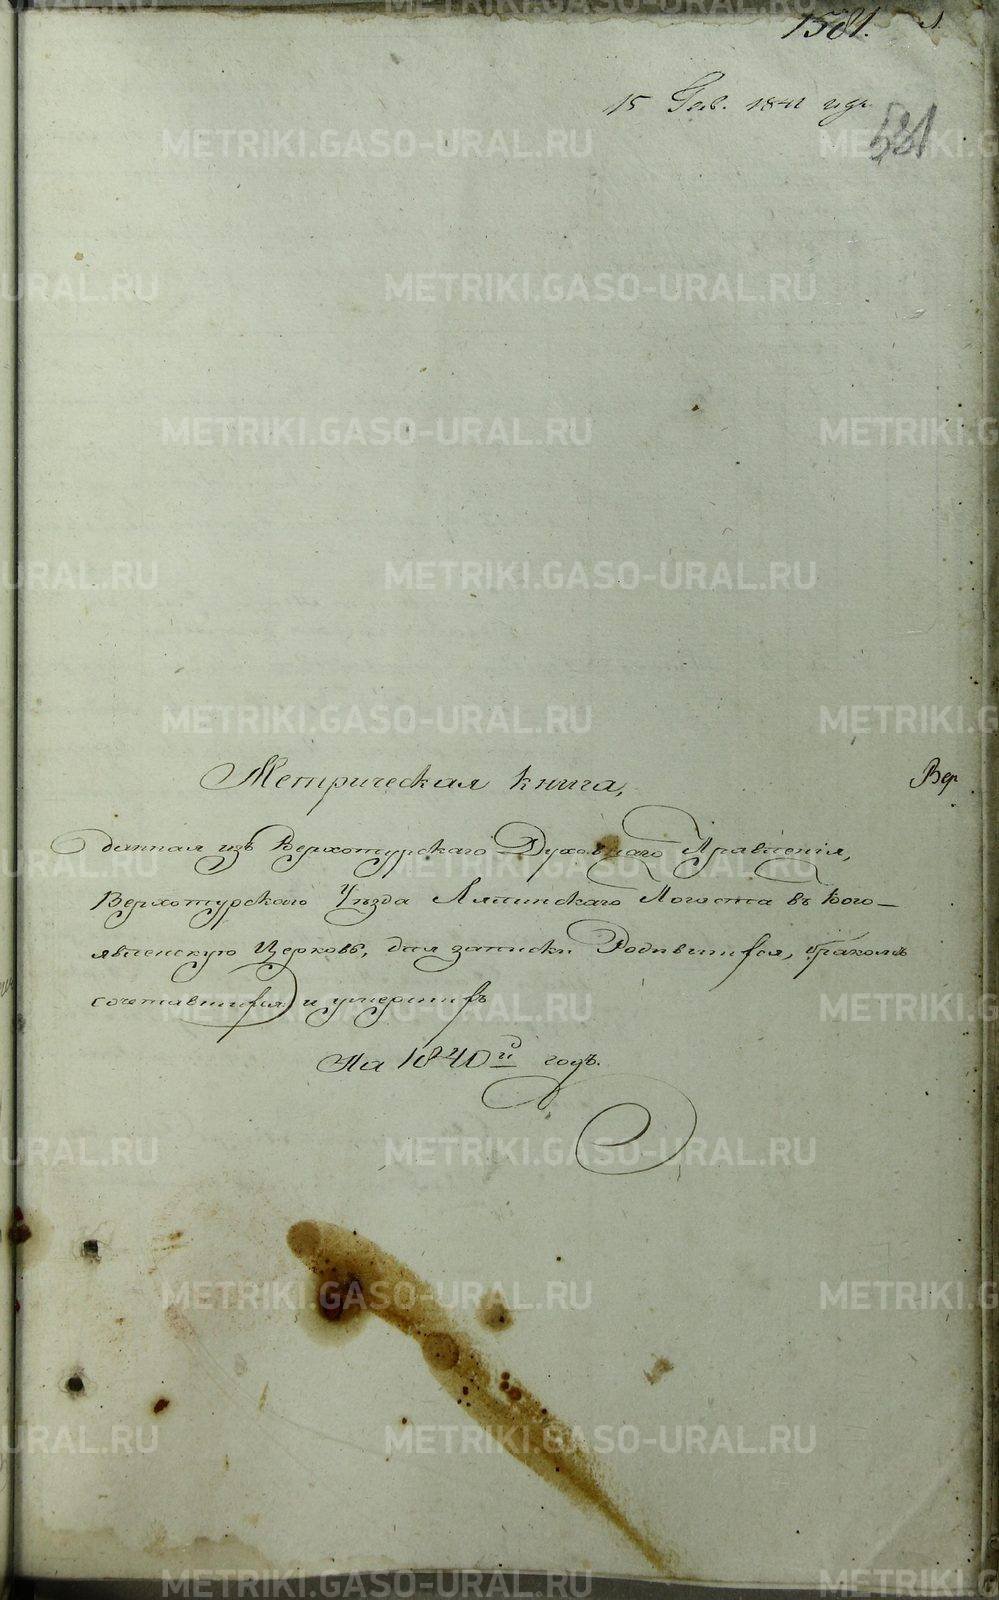 1581. 1.
15 Генв. 1841 года
531
Метрическая книга,
Вер
данная изъ Верхотурскаго Духовнаго Правленія,
Верхотурскаго Уѣзда Ляпинскаго Погоста въ Бого-
явленскую Церковь, для записки Родившихся, бракомъ
сочетавшихся и умершихъ
На 1840й годъ.
METRIKI.GASO-URAL.RU